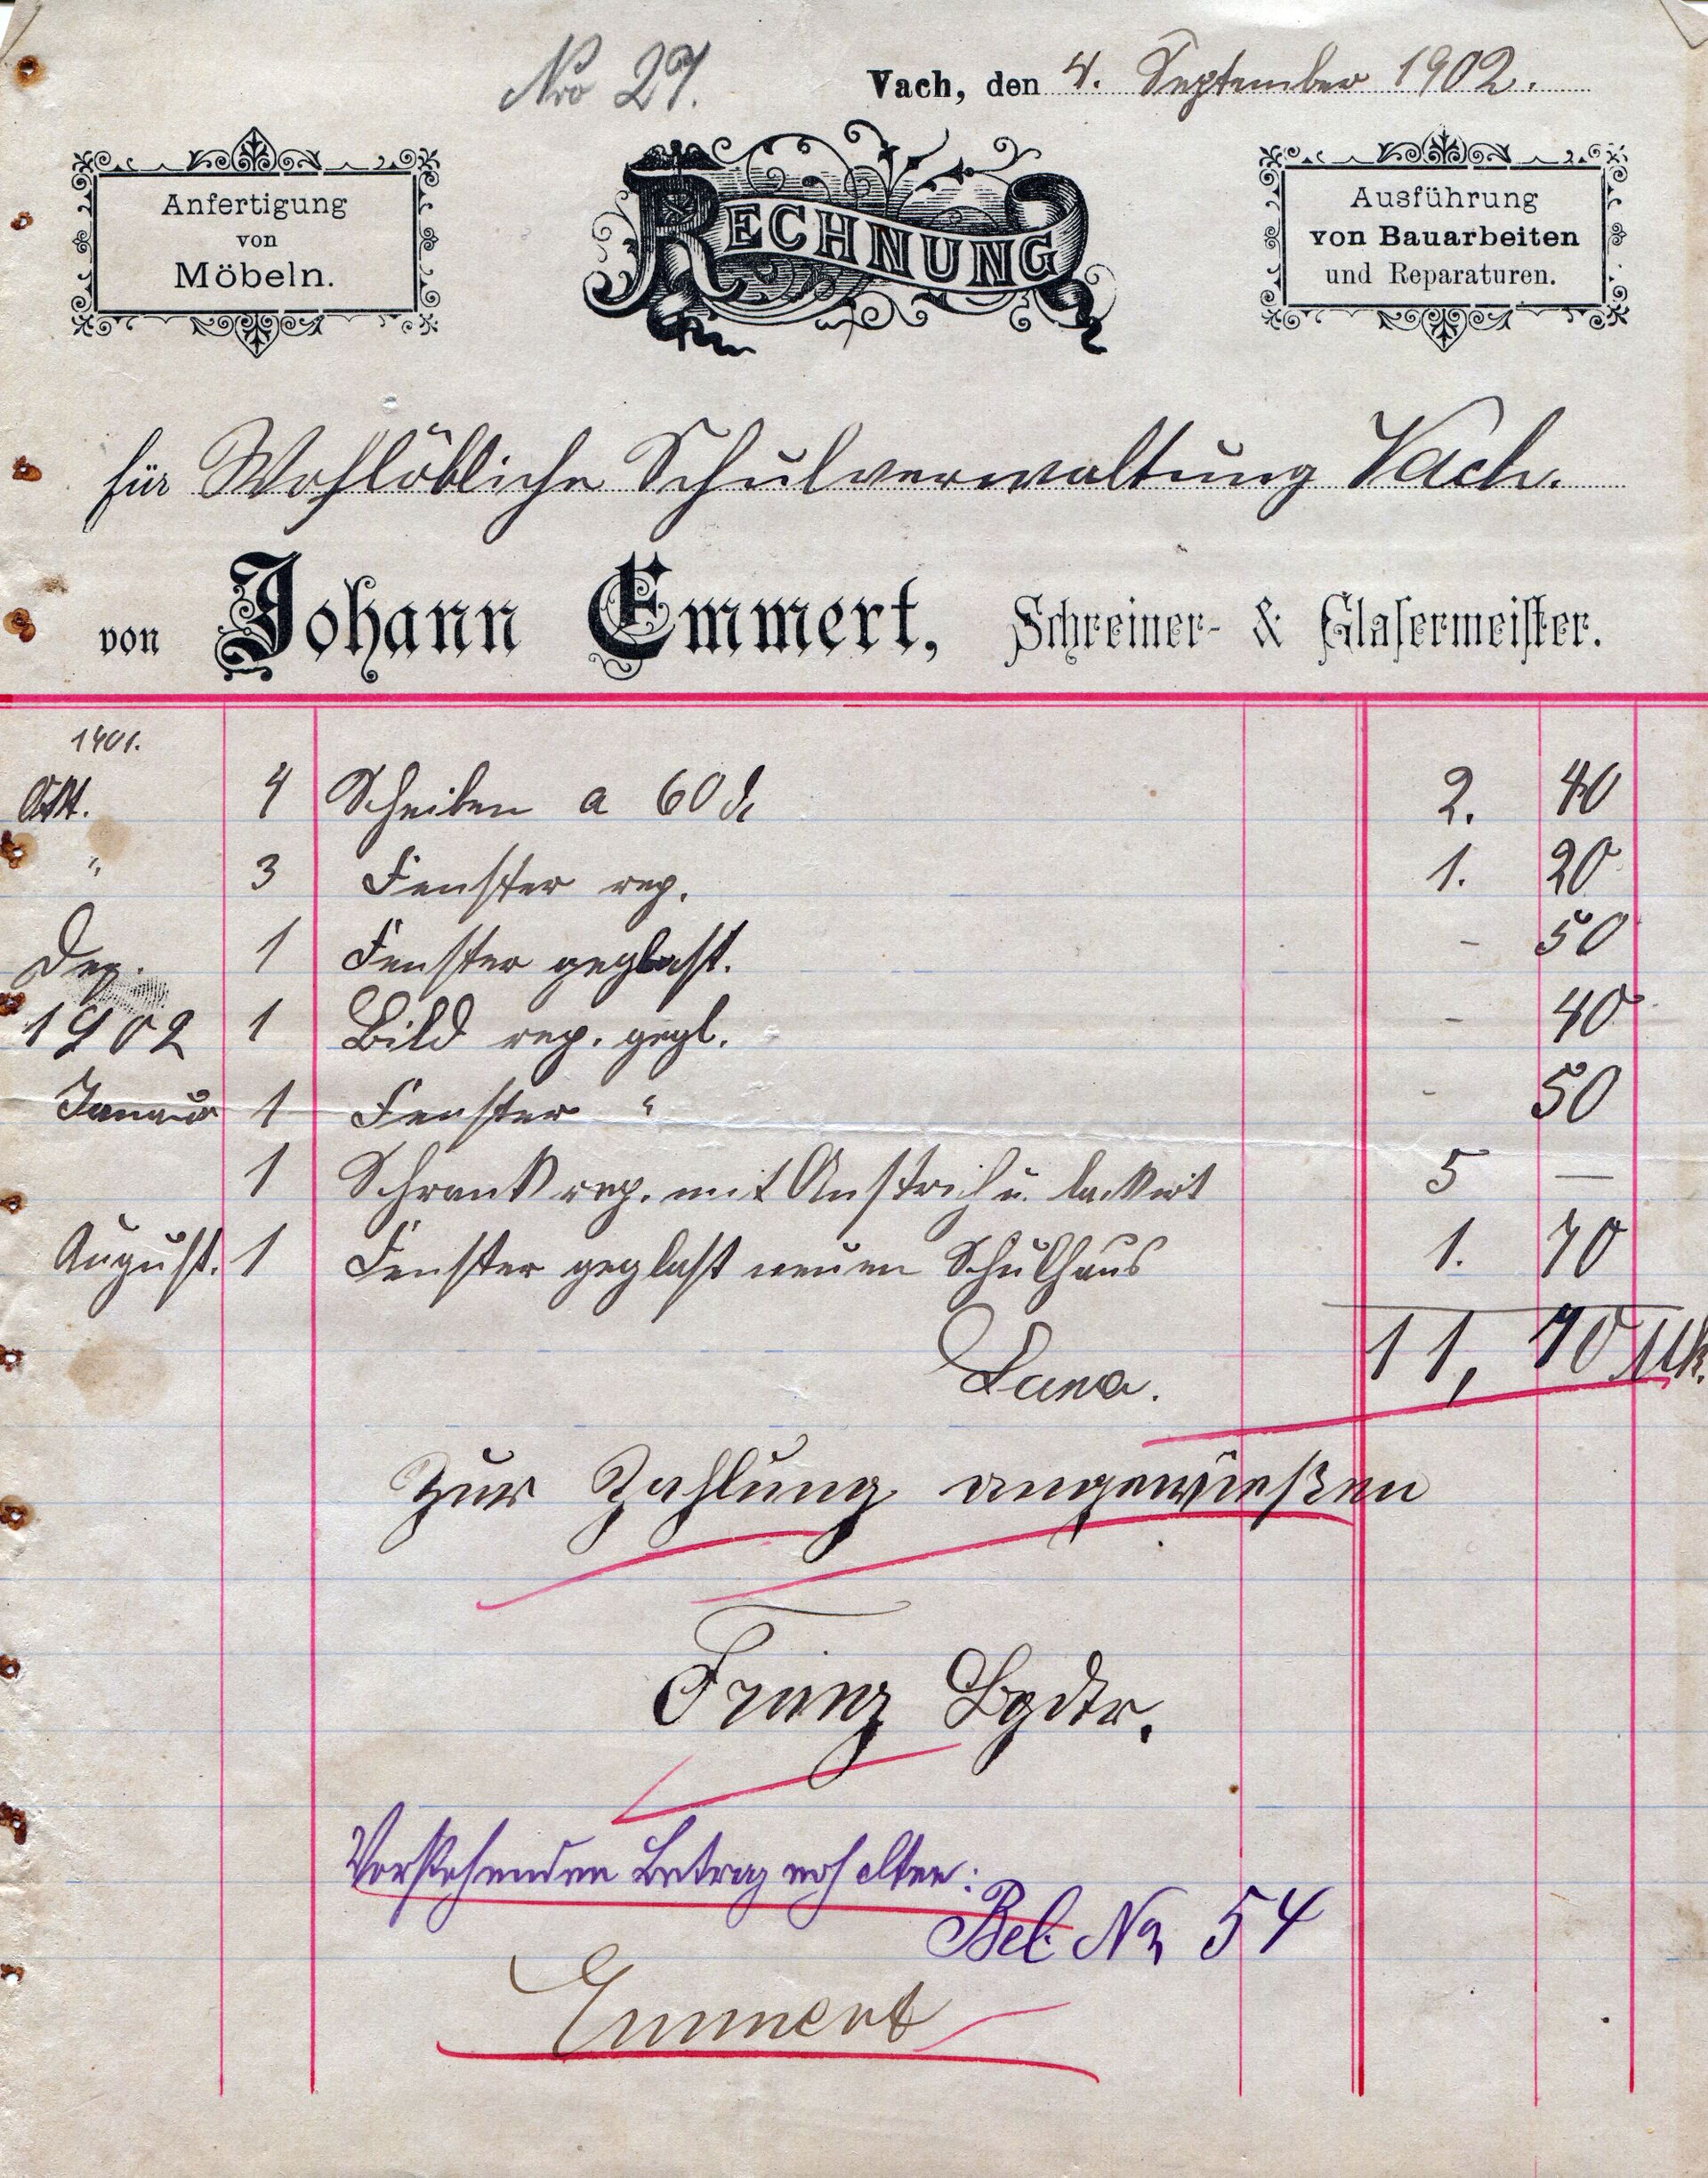 Nro 27.
Vach, den 4. September 1902.
Anfertigung
von
Möbeln.
RECHNUNG
Ausführung
von Bauarbeiten
und Reparaturen.
für Wohllöbliche Schulverwaltung Vach.
von Johann Emmert, Schreiner- & Glasermeister.
1901.
Okt. 4 Scheiben a 60 ₰ 2. 40
" 3 Fenster rep. 1. 20
Dez. 1 Fenster geglast. - 50
1902 1 Bild rep. gegl. - 40
Januar 1 Fenster " - 50
1 Schrank rep. mit Anstrich u. lackirt 5 —
August. 1 Fenster geglast neuen Schulhaus 1. 70
Suma. 11,70 Mk.
Zur Zahlung angewießen
Franz
Vorstehenden Betrag erhalten:
Bel. No 54
Emmert